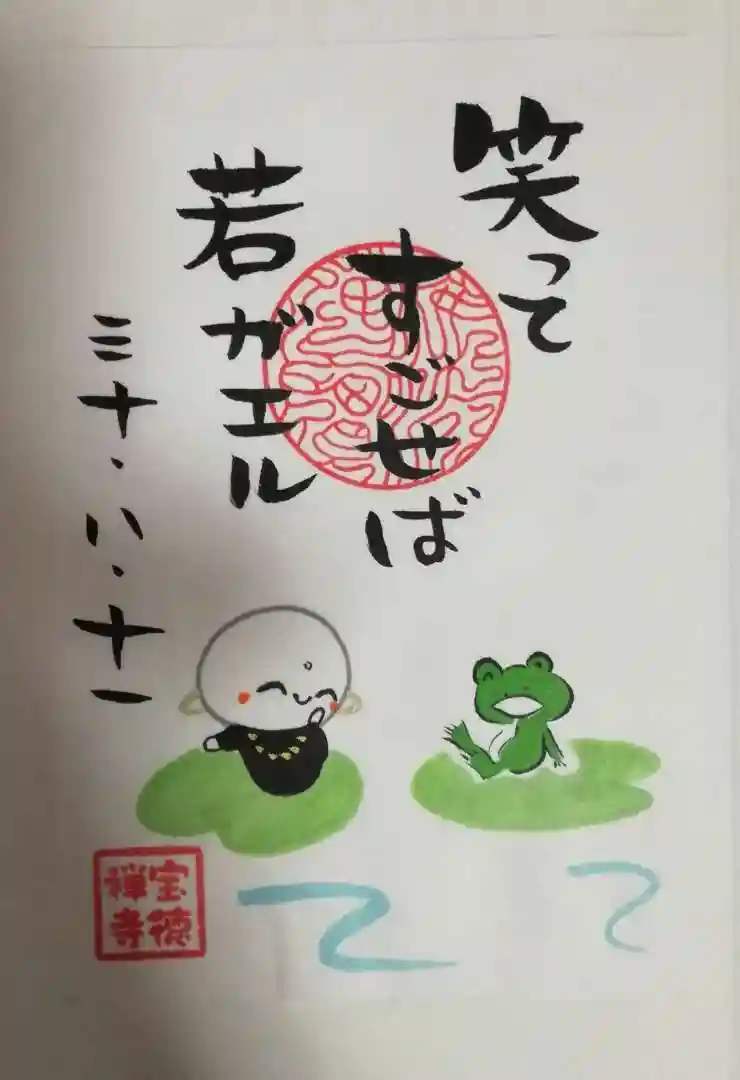 笑って
すごせば
若ガエル
三十・八・十一
宝徳
禅寺